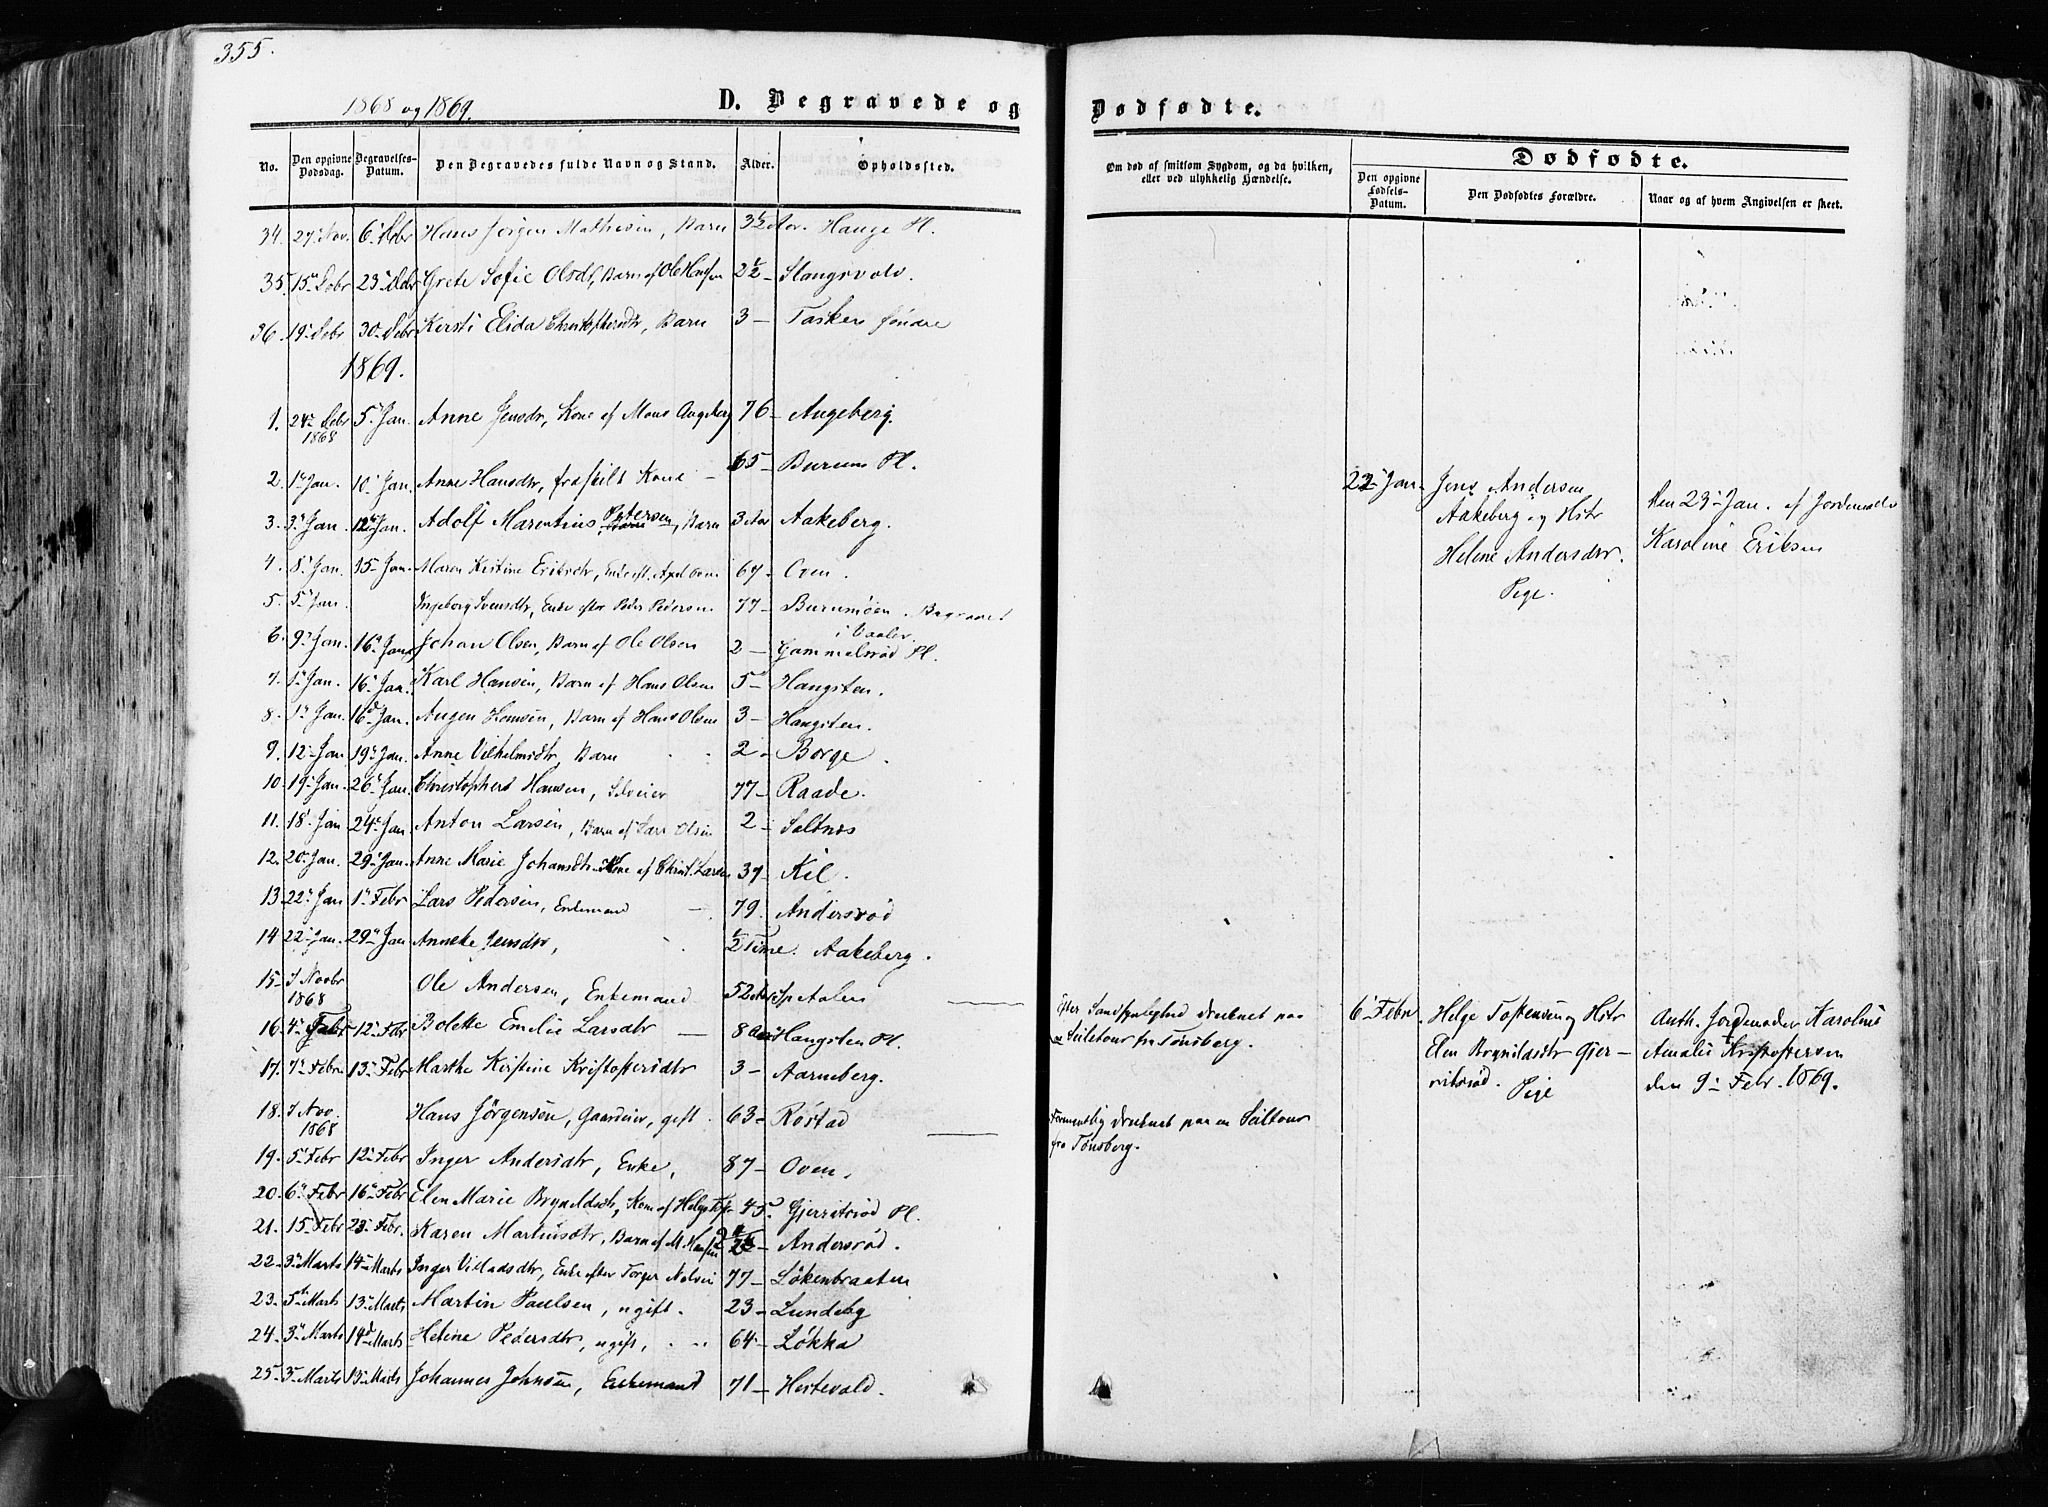 355.
1868 og 1869.
D. Begravede og
No. Den opgivne Dødsdag. Begravelses-Datum. Den Begravedes fulde Navn og Stand. Alder. Opholdssted.
34. 27. Nov. 6. Debr Hans Jørgen Mathisen, Barn 3½ Aar. Hauge Pl.
35. 15. Debr 23. Debr Grete Sofie Olsdr, Barn af Ole Hansen 2½ – Slangsvold.
36. 19. Debr 30. Debr Kersti Elida Christophersdtr, Barn 3 – Tasken søndre
1869.
1. 24. Debr 1868 5. Jan. Anne Jensdr, Kone af Mons Augeberg 76 – Augeberg.
2. 1. Jan. 10. Jan. Anne Hansdtr, fraskilt Kone – 65 – Burum Pl.
3. 3. Jan 12. Jan. Adolf Marentius Petersen, Barn 3 Aar Aakeberg.
4. 8. Jan. 15. Jan. Maren Kirstine Eriksdtr, Enke eft. Axel Oven 67 – Oven.
5. 5. Jan Ingeborg Svensdtr, Enke efter Peder Pedersen 77 – Burumøen. Begravet
i Vaaler.
6. 9. Jan. 16. Jan. Johan Olsen, Barn af Ole Olsen 2 – Gammelsrød Pl.
7. 1. Jan. 16. Jan. Karl Hansen, Barn af Hans Olsen 5 – Haugsten.
8. 1. Jan. 16. Jan. Augen Hansen, Barn af Hans Olsen 3 – Haugsten.
9. 12. Jan 19. Jan. Anne Vilhelmsdtr, Barn 2 – Borge.
10. 19. Jan. 26. Jan. Christophers Hansen, Selveier 77 – Raade.
11. 18. Jan 24. Jan. Anton Larsen, Barn af Lars Olsen 2 – Saltnes
12. 20. Jan. 29. Jan. Anne Marie Johansdtr. Kone af Christ. Larsen 37 – Kil.
13. 22. Jan 1. Febr Lars Pedersen, Enkemand – 79. Andersrød
14 22. Jan. 29. Jan Anneke Jensdtr, ½ Time. Aakeberg.
15. 7 Novbr 1868 Ole Andersen, Enkemand 52 Aar Spetalen
16. 4. Febr 12. Febr Bolette Emelie Larsdtr – 8 Aar Haugsten Pl.
17. 7. Febr 13. Febr Marthe Kirstine Kristoffersdtr 3 – Aarneberg.
18. 7 Nov. 1868 Hans Jørgensen, Gaardeier, gift. 63 – Røstad
19. 5. Febr 12. Febr Inger Andersdtr, Enke, 87 – Oven.
20. 6. Febr 16. Febr Elen Marie Bryneldsdtr, Kone af Helge 45. Gjervitsrød Pl.
21. 15. Febr 23. Febr. Karen Martinsdtr, Barn af M. Hansen Andersrød.
22. 3. Marts 14. Marts Inger Villadsdtr, Enke efter Torger 77 – Løkenbraaten
23. 5. Marts 13. Marts Martin Paulsen, ugift. 23 – Lundeby
24. 3. Marts 14. Marts Helene Pedersdtr, ugift, 64 – Løkka
25. 3. Marts 13. Marts Johannes Johnsen, Enkemand 71 – Hestevold.
Dødfødte.
Om død af smitsom Sygdom, og da hvilken, eller ved ulykkelig Hændelse.
Dødfødte.
Den opgivne Fødsels-Datum. Den Dødfødtes Forældre. Naar og af hvem Angivelsen er skeet.
22. Jan. Jens Andersen
Aakeberg og Hstr
Helene Andersdtr.
Pige.
Den 23. Jan. af Jordemoder
Karoline Eriksen
Efter druknet paa
en Seiletour fra Tønsberg.
6. Febr. Helge Tostensen og Hstr
Elen Bryneldsdtr Gjer-
vitsrød. Pige
Auth. Jordemoder Karoline
Amalie Kristoffersen
den 9. Febr. 1869.
Formentlig druknet paa en Seiltour
fra Tønsberg.